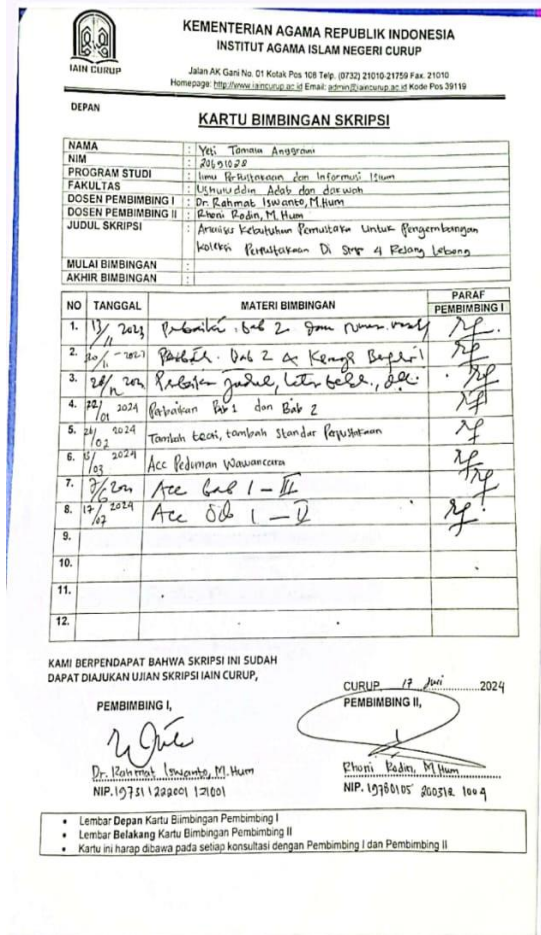 KEMENTERIAN AGAMA REPUBLIK INDONESIA
INSTITUT AGAMA ISLAM NEGERI CURUP
IAIN CURUP
Jalan AK Gani No. 01 Kotak Pos 108 Telp. (0732) 21010-21759 Fax. 21010
Homepage: http://www.iaincurup.ac.id Email: admin@iaincurup.ac.id Kode Pos 39119
DEPAN
KARTU BIMBINGAN SKRIPSI
NAMA : Yeti Tamala Anggraini
NIM : 20691028
PROGRAM STUDI : Ilmu Perpustakaan dan Informasi Islam
FAKULTAS : Ushuluddin Adab dan dakwah
DOSEN PEMBIMBING I : Dr. Rahmat Iswanto, M.Hum
DOSEN PEMBIMBING II : Rhoni Rodin, M. Hum
JUDUL SKRIPSI : Analisis Kebutuhan Pemustaka Untuk Pengembangan
Koleksi Perpustakaan Di Smp 4 Rejang Lebong
MULAI BIMBINGAN :
AKHIR BIMBINGAN :
NO TANGGAL MATERI BIMBINGAN PARAF
PEMBIMBING I
1. 13/11 2023 bab 2
2. Bab 2
3. judul,
4. 22/01 2024 Perbaikan Bab 1 dan Bab 2
5. 2024 Tambah teori, tambah Standar Perpustakaan
6. 2024 Acc Pedoman Wawancara
7. Acc bab I - III
8. 17/07 2024 Acc I - V
9.
10.
11.
12.
KAMI BERPENDAPAT BAHWA SKRIPSI INI SUDAH
DAPAT DIAJUKAN UJIAN SKRIPSI IAIN CURUP,
CURUP, 17 Juni 2024
PEMBIMBING I, PEMBIMBING II,
Dr. Rahmat Iswanto, M.Hum Rhoni Rodin, M.Hum
NIP. 197311222001121001 NIP. 19780105 200312 1004
• Lembar Depan Kartu Biimbingan Pembimbing I
• Lembar Belakang Kartu Bimbingan Pembimbing II
• Kartu ini harap dibawa pada setiap konsultasi dengan Pembimbing I dan Pembimbing II